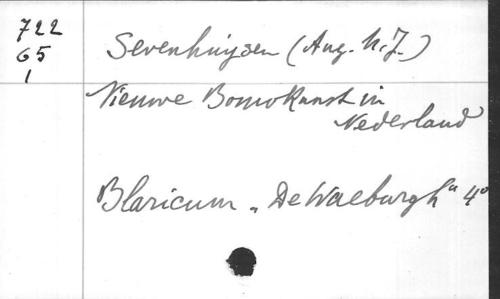 722
65
1
Sevenhuijsen (Aug. M. J.)
Nieuwe Bouwkunst in
Nederland
Blaricum „De Waelburgh" 4°